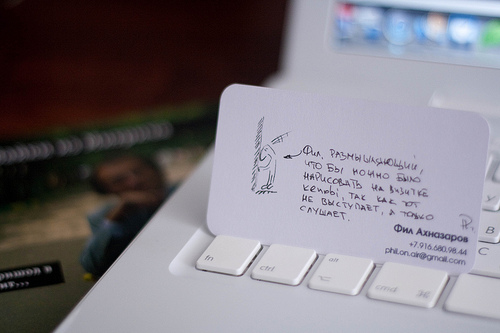 Фил, РАЗМЫШЛЯЮЩИЙ,
ЧТО БЫ МОЖНО БЫЛО
НАРИСОВАТЬ НА ВИЗИТКЕ
kenobi, ТАК КАК ТОТ
НЕ ВЫСТУПАЕТ, А ТОЛЬКО
СЛУШАЕТ.
Фил Ахназаров
+7.916.680.98.44
phil.on.air@gmail.com
fn
ctrl
alt
cmd
Y
B
C